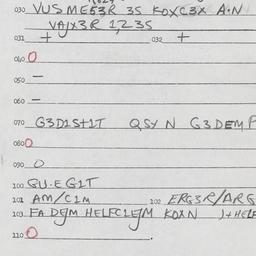 030 VUS ME53R 3S KOXC3X A·N
VAJX3R 1,23S
031 + 032 +
040 O
050 —
060 —
070 G3D1S+1T QSY N G3DEMF
080 O
090 O
100 GU·EG1T
101 AM/C1M 102 ERG3R/ARG
103 FA DEJM HELFC1EJM KOXN )+HELF
110 O